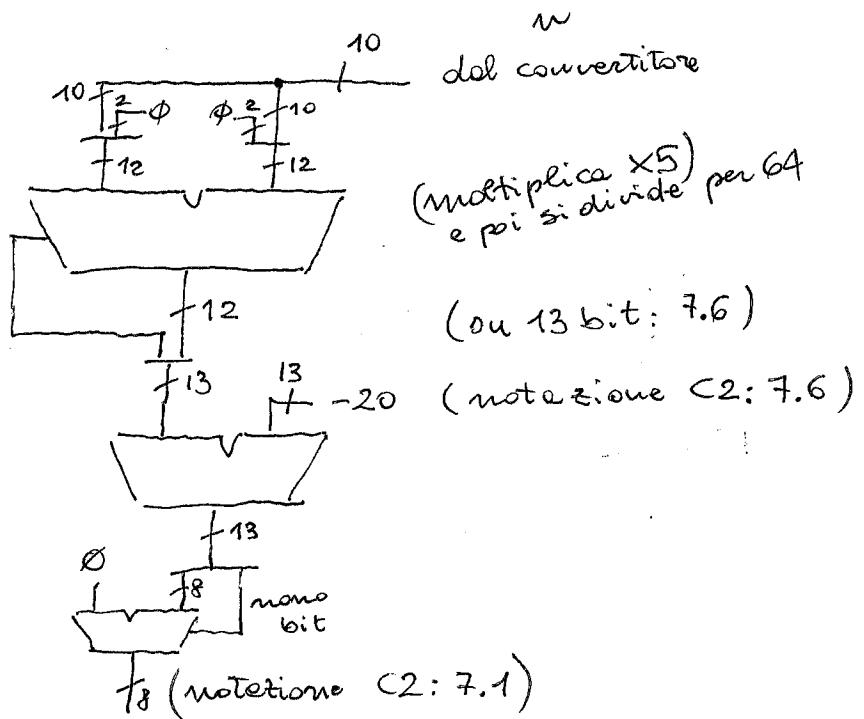 n
10
dal convertitore
10 2 ϕ ϕ 2 10
12 12
(moltiplica ×5)
e poi si divide per 64
12
(su 13 bit: 7.6)
13 13 -20 (notazione C2: 7.6)
13
Ø 8 nono
bit
8 (notazione C2: 7.1)